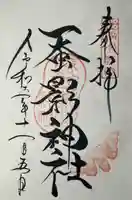 奉拝
蚕影神社
令和二年十一月五日